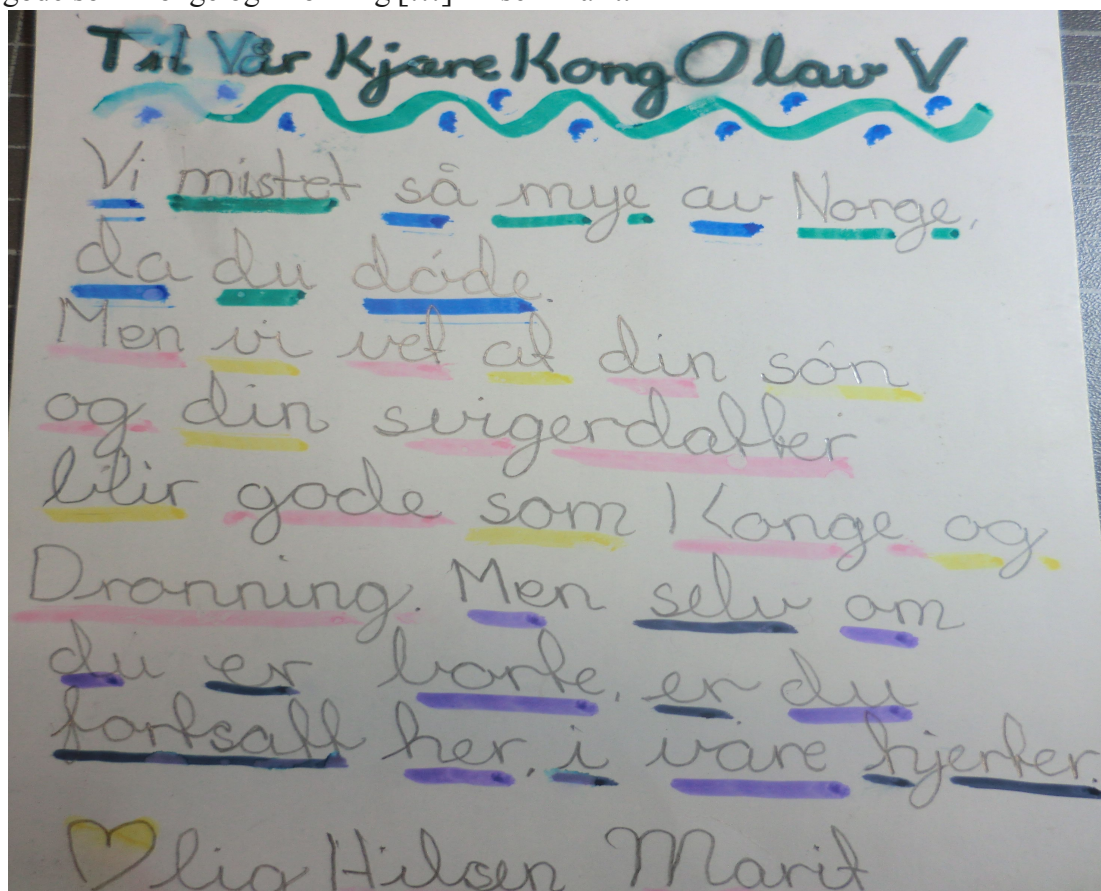 Til Vår Kjære Kong Olav V
Vi mistet så mye av Norge,
da du døde.
Men vi vet at din sønn
og din svigerdatter
blir gode som Konge og
Dronning. Men selv om
du er borte, er du
fortsatt her, i våre hjerter.
lig Hilsen Marit